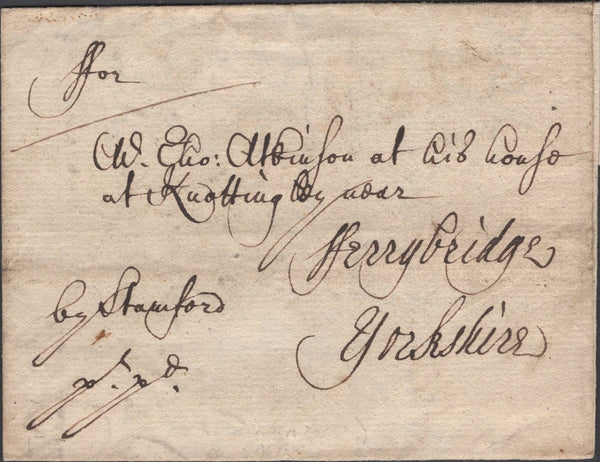 ffor
Mr. Tho: Atkinson at his house
at Knottingley near
fferrybridge
Yorkshire
by Stamford
pt. pd.